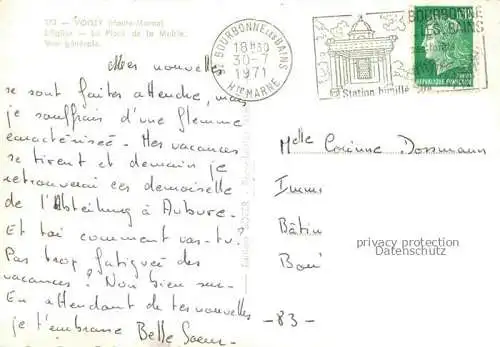 313 - VOISEY (Haute-Marne)
L'Eglise - La Place de la Mairie.
Vue générale.
BOURBONNE LES BAINS
18H30
30-7
1971
Hte MARNE
BOURBONNE
LES BAINS
Station
REPUBLIQUE FRANÇAISE
Mes nouvelles
se sont faites attendre, mais
je souffrais d'une flemme
caractérisée. Mes vacances
se tirent et demain je
retrouverai ces demoiselle
de l'Abteilung à Aubure.
Et toi comment vas-tu?
Pas trop fatiguée des
vacances? Non bien sur.
En attendant de tes nouvelles
je t'embrasse Belle Soeur.
Melle Corinne Dossmann
Imm
Bâtim
Bou
- 83 -
privacy protection
Datenschutz